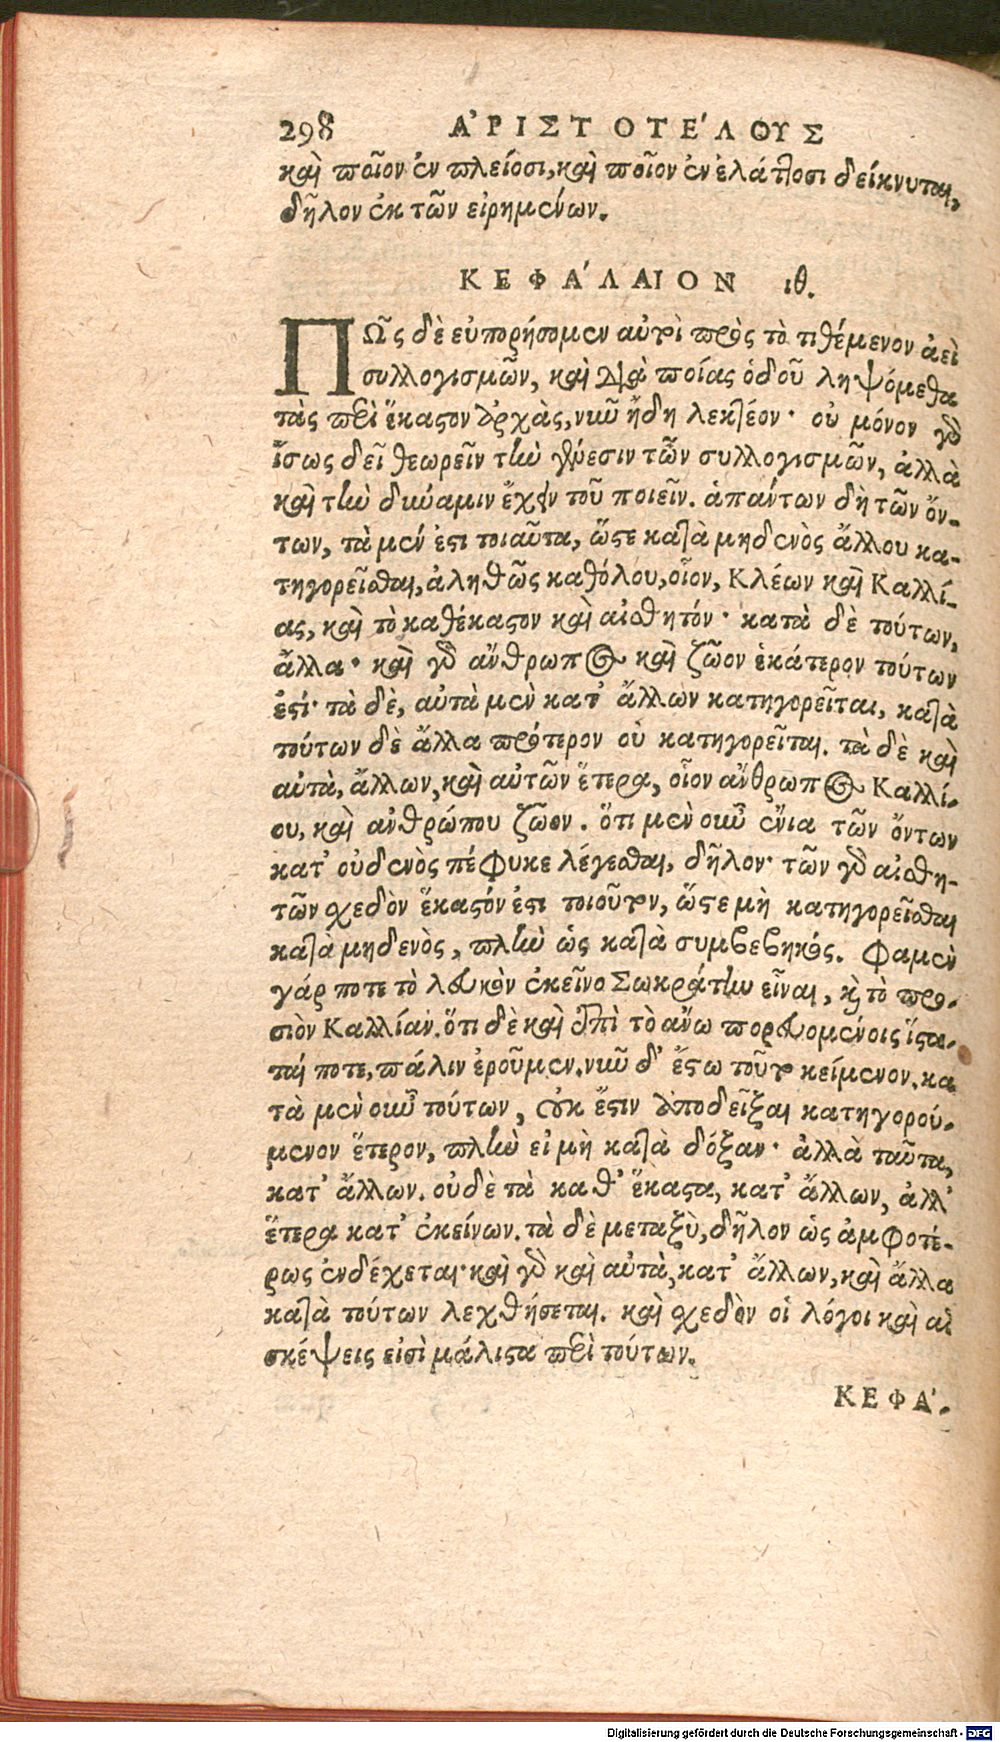 298 ἈΡΙΣΤΟΤΕ´ΛΟΥΣ
καὶ ποῖον ἐν πλείοσι, καὶ ποῖον ἐν ἐλάττοσι δείκνυται,
δῆλον ἐκ τῶν εἰρημένων.
ΚΕΦΑ´ΛΑΙΟΝ ιθ.
ΠΩ͂ς δὲ εὐπορήσομεν αὐτοὶ πρὸς τὸ τιθέμενον ἀεὶ
συλλογισμῶν, καὶ διὰ ποίας ὁδοῦ ληψόμεθα
τὰς περὶ ἕκαστον ἀρχὰς, νῦν ἤδη λεκτέον· οὐ μόνον γὸ
ἴσως δεῖ θεωρεῖν τὴν γένεσιν τῶν συλλογισμῶν, ἀλλὰ
καὶ τὴν δύναμιν ἔχειν τοῦ ποιεῖν. ἁπάντων δὴ τῶν ὄν-
των, τὰ μέν ἐστι τοιαῦτα, ὥστε κατὰ μηδενὸς ἄλλου κα-
τηγορεῖσθαι, ἀληθῶς καθόλου, οἷον, Κλέων καὶ Καλλί-
ας, καὶ τὸ καθέκαστον καὶ αἰσθητόν· κατὰ δὲ τούτων,
ἄλλα· καὶ γὸ ἄνθρωπος καὶ ζῶον ἑκάτερον τούτων
ἐστί· τὰ δὲ, αὐτὰ μὲν κατ' ἄλλων κατηγορεῖται, κατὰ
τούτων δὲ ἄλλα πρότερον οὐ κατηγορεῖται. τὰ δὲ καὶ
αὐτὰ, ἄλλων, καὶ αὐτῶν ἕτερα, οἷον ἄνθρωπος Καλλί-
ου, καὶ ἀνθρώπου ζῶον. ὅτι μὲν οὖν ἔνια τῶν ὄντων
κατ' οὐδενὸς πέφυκε λέγεσθαι, δῆλον· τῶν γὸ αἰσθη-
τῶν σχεδὸν ἕκαστόν ἐστι τοιοῦτον, ὥστε μὴ κατηγορεῖσθαι
κατὰ μηδενὸς, πλὴν ὡς κατὰ συμβεβηκός. Φαμὲν
γάρ ποτε τὸ λευκὸν ἐκεῖνο Σωκράτην εἶναι, κὶ τὸ προ-
σιὸν Καλλίαν. ὅτι δὲ καὶ ἐπὶ τὸ ἄνω πορευομένοις ἵστα-
ταί ποτε, πάλιν ἐροῦμεν. νῦν δ' ἔστω τοῦτο κείμενον. κα
τὰ μὲν οὖν τούτων, οὐκ ἔστιν ἀποδεῖξαι κατηγορού-
μενον ἕτερον, πλὴν εἰ μὴ κατὰ δόξαν· ἀλλὰ ταῦτα,
κατ' ἄλλων. οὐδὲ τὰ καθ' ἕκαστα, κατ' ἄλλων, ἀλλ'
ἕτερα κατ' ἐκείνων. τὰ δὲ μεταξὺ, δῆλον ὡς ἀμφοτέ-
ρως ἐνδέχεται· καὶ γὸ καὶ αὐτὰ, κατ' ἄλλων, καὶ ἄλλα
κατὰ τούτων λεχθήσεται. καὶ σχεδὸν οἱ λόγοι καὶ αἱ
σκέψεις εἰσὶ μάλιστα περὶ τούτων.
ΚΕΦΑ´-
Digitalisierung gefördert durch die Deutsche Forschungsgemeinschaft - DFG